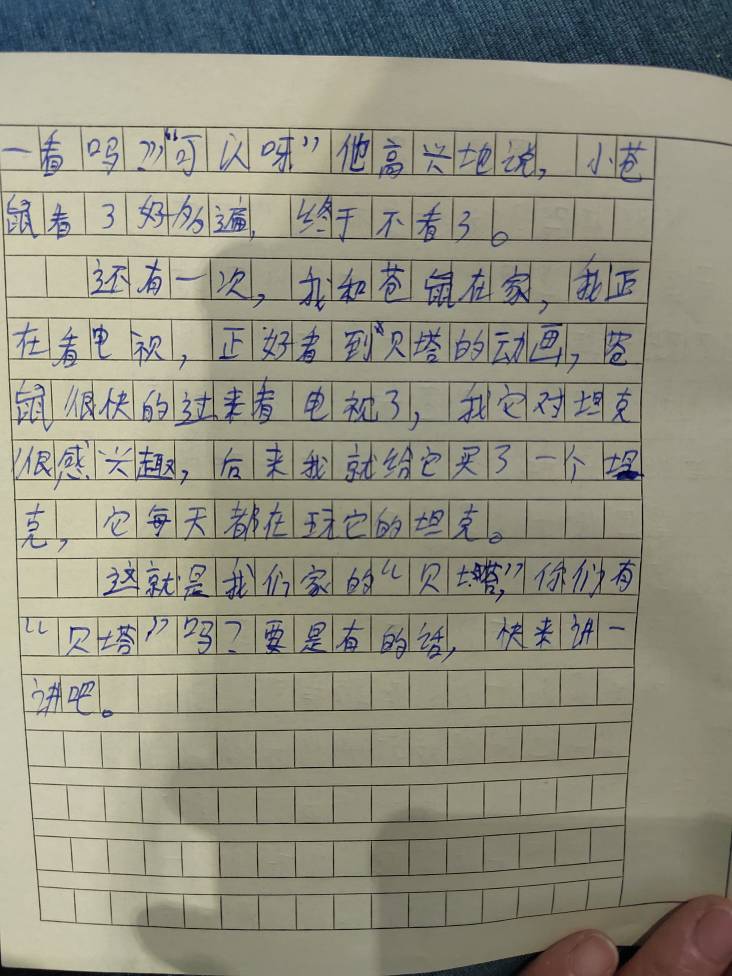 一看吗？”“可以呀”他高兴地说，小苍
鼠看了好多遍，终于不看了。
还有一次，我和苍鼠在家，我正
在看电视，正好看到“贝塔的动画，苍
鼠很快的过来看电视了，我它对坦克
很感兴趣，后来我就给它买了一个坦
克，它每天都在玩它的坦克。
这就是我们家的“贝塔，”你们有
“贝塔”吗？要是有的话，快来讲一
讲吧。